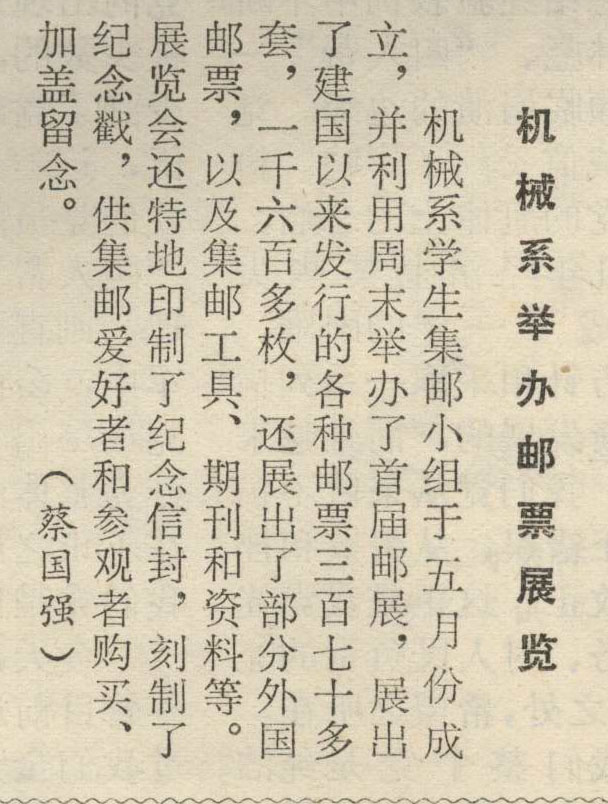 机械系举办邮票展览
机械系学生集邮小组于五月份成
立，并利用周末举办了首届邮展，展出
了建国以来发行的各种邮票三百七十多
套，一千六百多枚，还展出了部分外国
邮票，以及集邮工具、期刊和资料等。
展览会还特地印制了纪念信封，刻制了
纪念戳，供集邮爱好者和参观者购买、
加盖留念。（蔡国强）